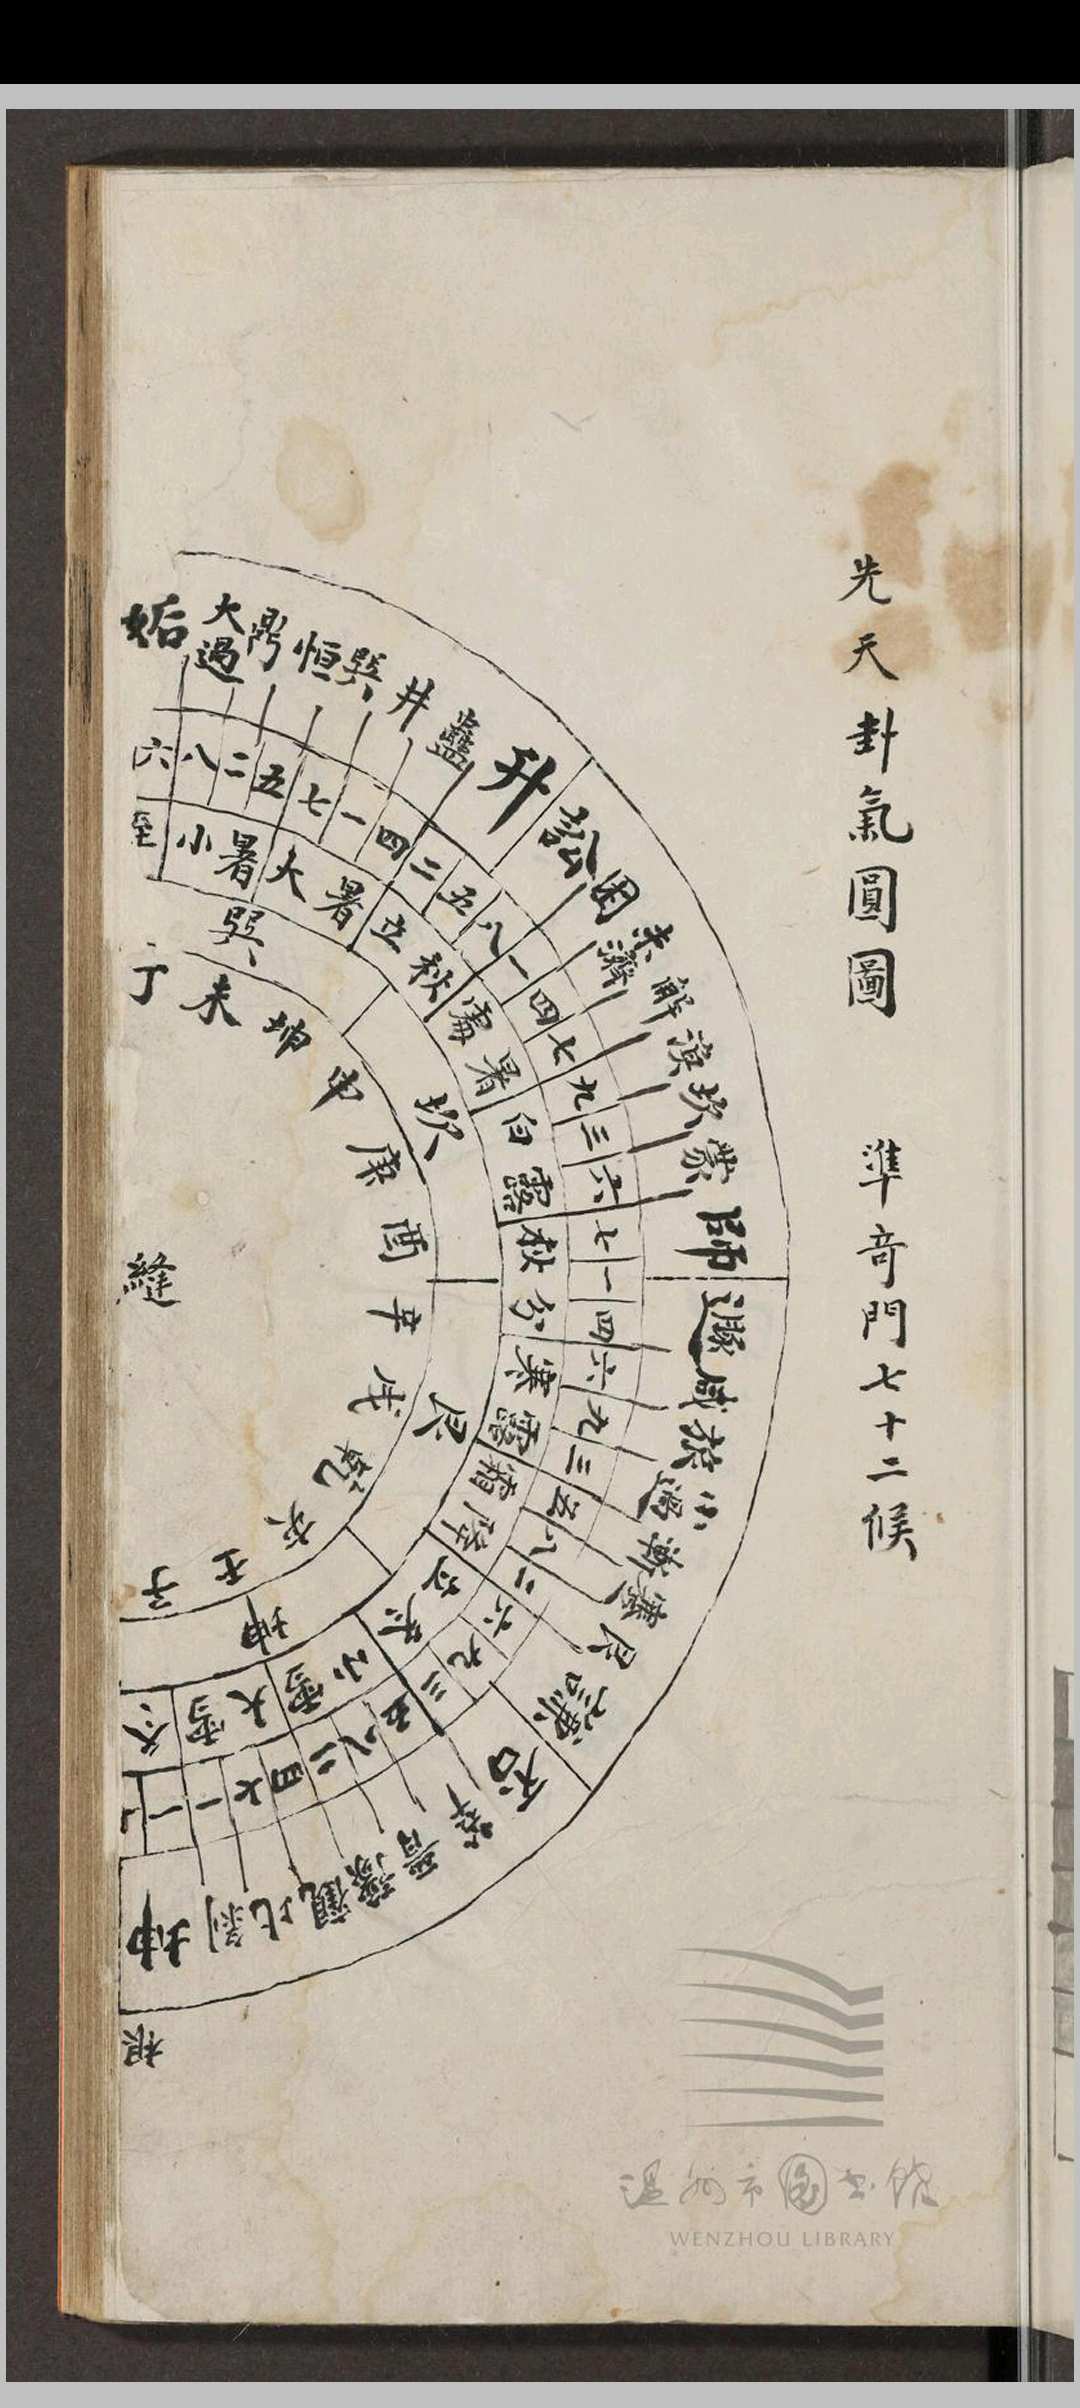 先天卦氣圓圖 準奇門七十二候
姤 大過 鼎 恒 巽 井 蠱 升 訟 困 未濟 解 渙 坎 蒙 師 遯 咸 旅 小過 漸 蹇 艮 謙 否 萃 晉 豫 觀 比 剝 坤
六 八 二 五 七 一 四 二 五 八 一 四 七 九 三 六 七 一 四 六 九 三 五 八 二 六 九 三 五 八 二 四 七 一 一
至 小暑 大暑 立秋 處暑 白露 秋分 寒露 霜降 立冬 小雪 大雪 冬
巽 坎 艮 坤
丁 未 坤 申 庚 酉 辛 戌 乾 亥 壬 子
縫
根
温州市图书馆
WENZHOU LIBRARY